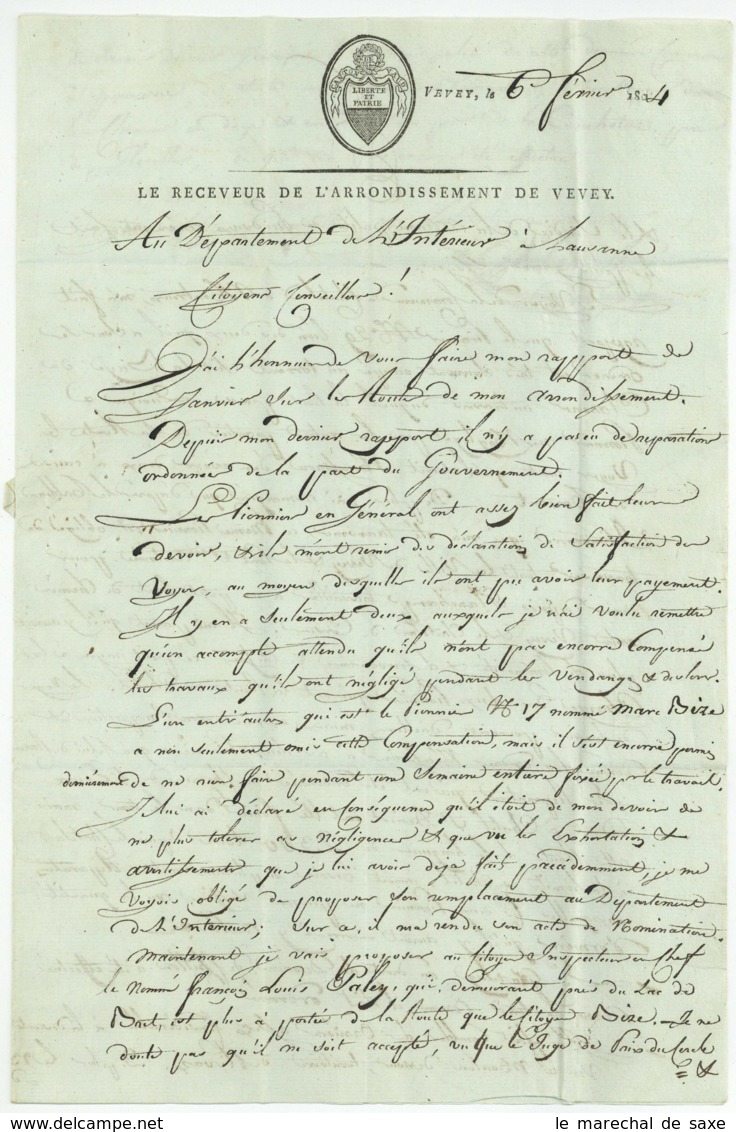 CANTON DE VAUD
LIBERTÉ
ET
PATRIE
VEVEY, le 6e février 1804
LE RECEVEUR DE L'ARRONDISSEMENT DE VEVEY.
Au Département de L'Intérieur à Lausanne
Citoyens Conseillers!
J'ai l'honneur de vous faire mon rappport de
Janvier sur les Routes de mon arrondissement.
Depuis mon dernier rapport il n'y a pas eu de reparations
ordonnées de la part du Gouvernement.
Les Pionniers en Général ont assez bien fait leurs
devoirs, & ils m'ont remis des déclarations de Satisfaction des
Voyers, au moyen desquelles ils ont pu avoir leur payement.
Il y en a seulement deux auxquels je n'ai voulu remettre
qu'un accompte attendu qu'ils n'ont pas encorre Compensé
les travaux qu'ils ont négligé pendant les Vendanges &
L'un entr'autres qui est le Pionnier No 17 nommé Marc Bize
a non seulement omis cette Compensation, mais il s'est encorre permis
dernièrement de ne rien faire pendant une Semaine entière fixée pr le travail.
Je lui ai déclaré en Conséquence qu'il étoit de mon devoir de
ne plus tolérer ces Négligences & que vu les Exhortations &
avertissements que je lui avois deja faits précédemment, je me
voyois obligé de proposer son remplacement au Département
de L'Interieur; sur ce, il m'a rendu son acte de Nomination.
Maintenant je vais proposer au Citoyen Inspecteur en Cheff
le Nommé François Louis Paley, qui, demeurant près du Lac de
Bret, est plus à portée de la Route que le Citoyen Bize. Je ne
doute pas qu'il ne soit accepté, vu que le Juge de Paix du Cercle
&
le marechal de saxe